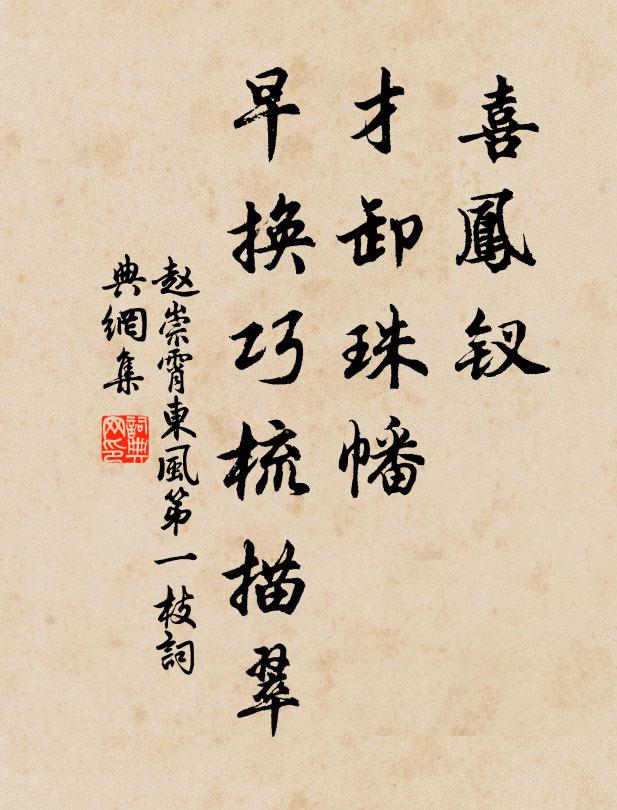 喜鳳釵
才卸珠幡
早換巧梳描翠
赵崇霄東風第一枝詞
典網集
詞典网印